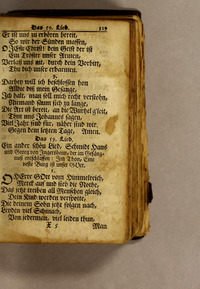 Das 59. Lied. 319
Er ist uns zu erhören bereit,
So wir der Sünden müssen,
O JEsu Christ! dein Geist der ist
Ein Tröster unser Armen,
Verlaß uns nit, durch dein Vorbitt,
Thu dich unser erbarmen.
9.
Darbey will ich beschlossen hon
Allhie diß mein Gesange,
Ich halt, man soll mich recht verstohn,
Niemand saum sich zu lange,
Die Axt ist bereit, an die Wurtzel g'leit,
Thut uns Johannes sagen,
Viel Jahr sind für, näher sind wir,
Gegen dem letzten Tage, Amen.
Das 59. Lied.
Ein ander schön Lied, Schmidt Hans
und Georg von Ingersheim, der im Gefäng-
niß Im Thon, Eine
veste Burg ist unser GOtt.
1.
O HErre GOtt vom Himmelreich,
Merck auf und sieh die Nothe,
Das jetzt treiben all Menschen gleich,
Dein Kind werden verspotte,
Die deinem Sohn jetzt folgen nach,
Leyden viel Schmach,
Von jederman, viel leiden thun,
Man